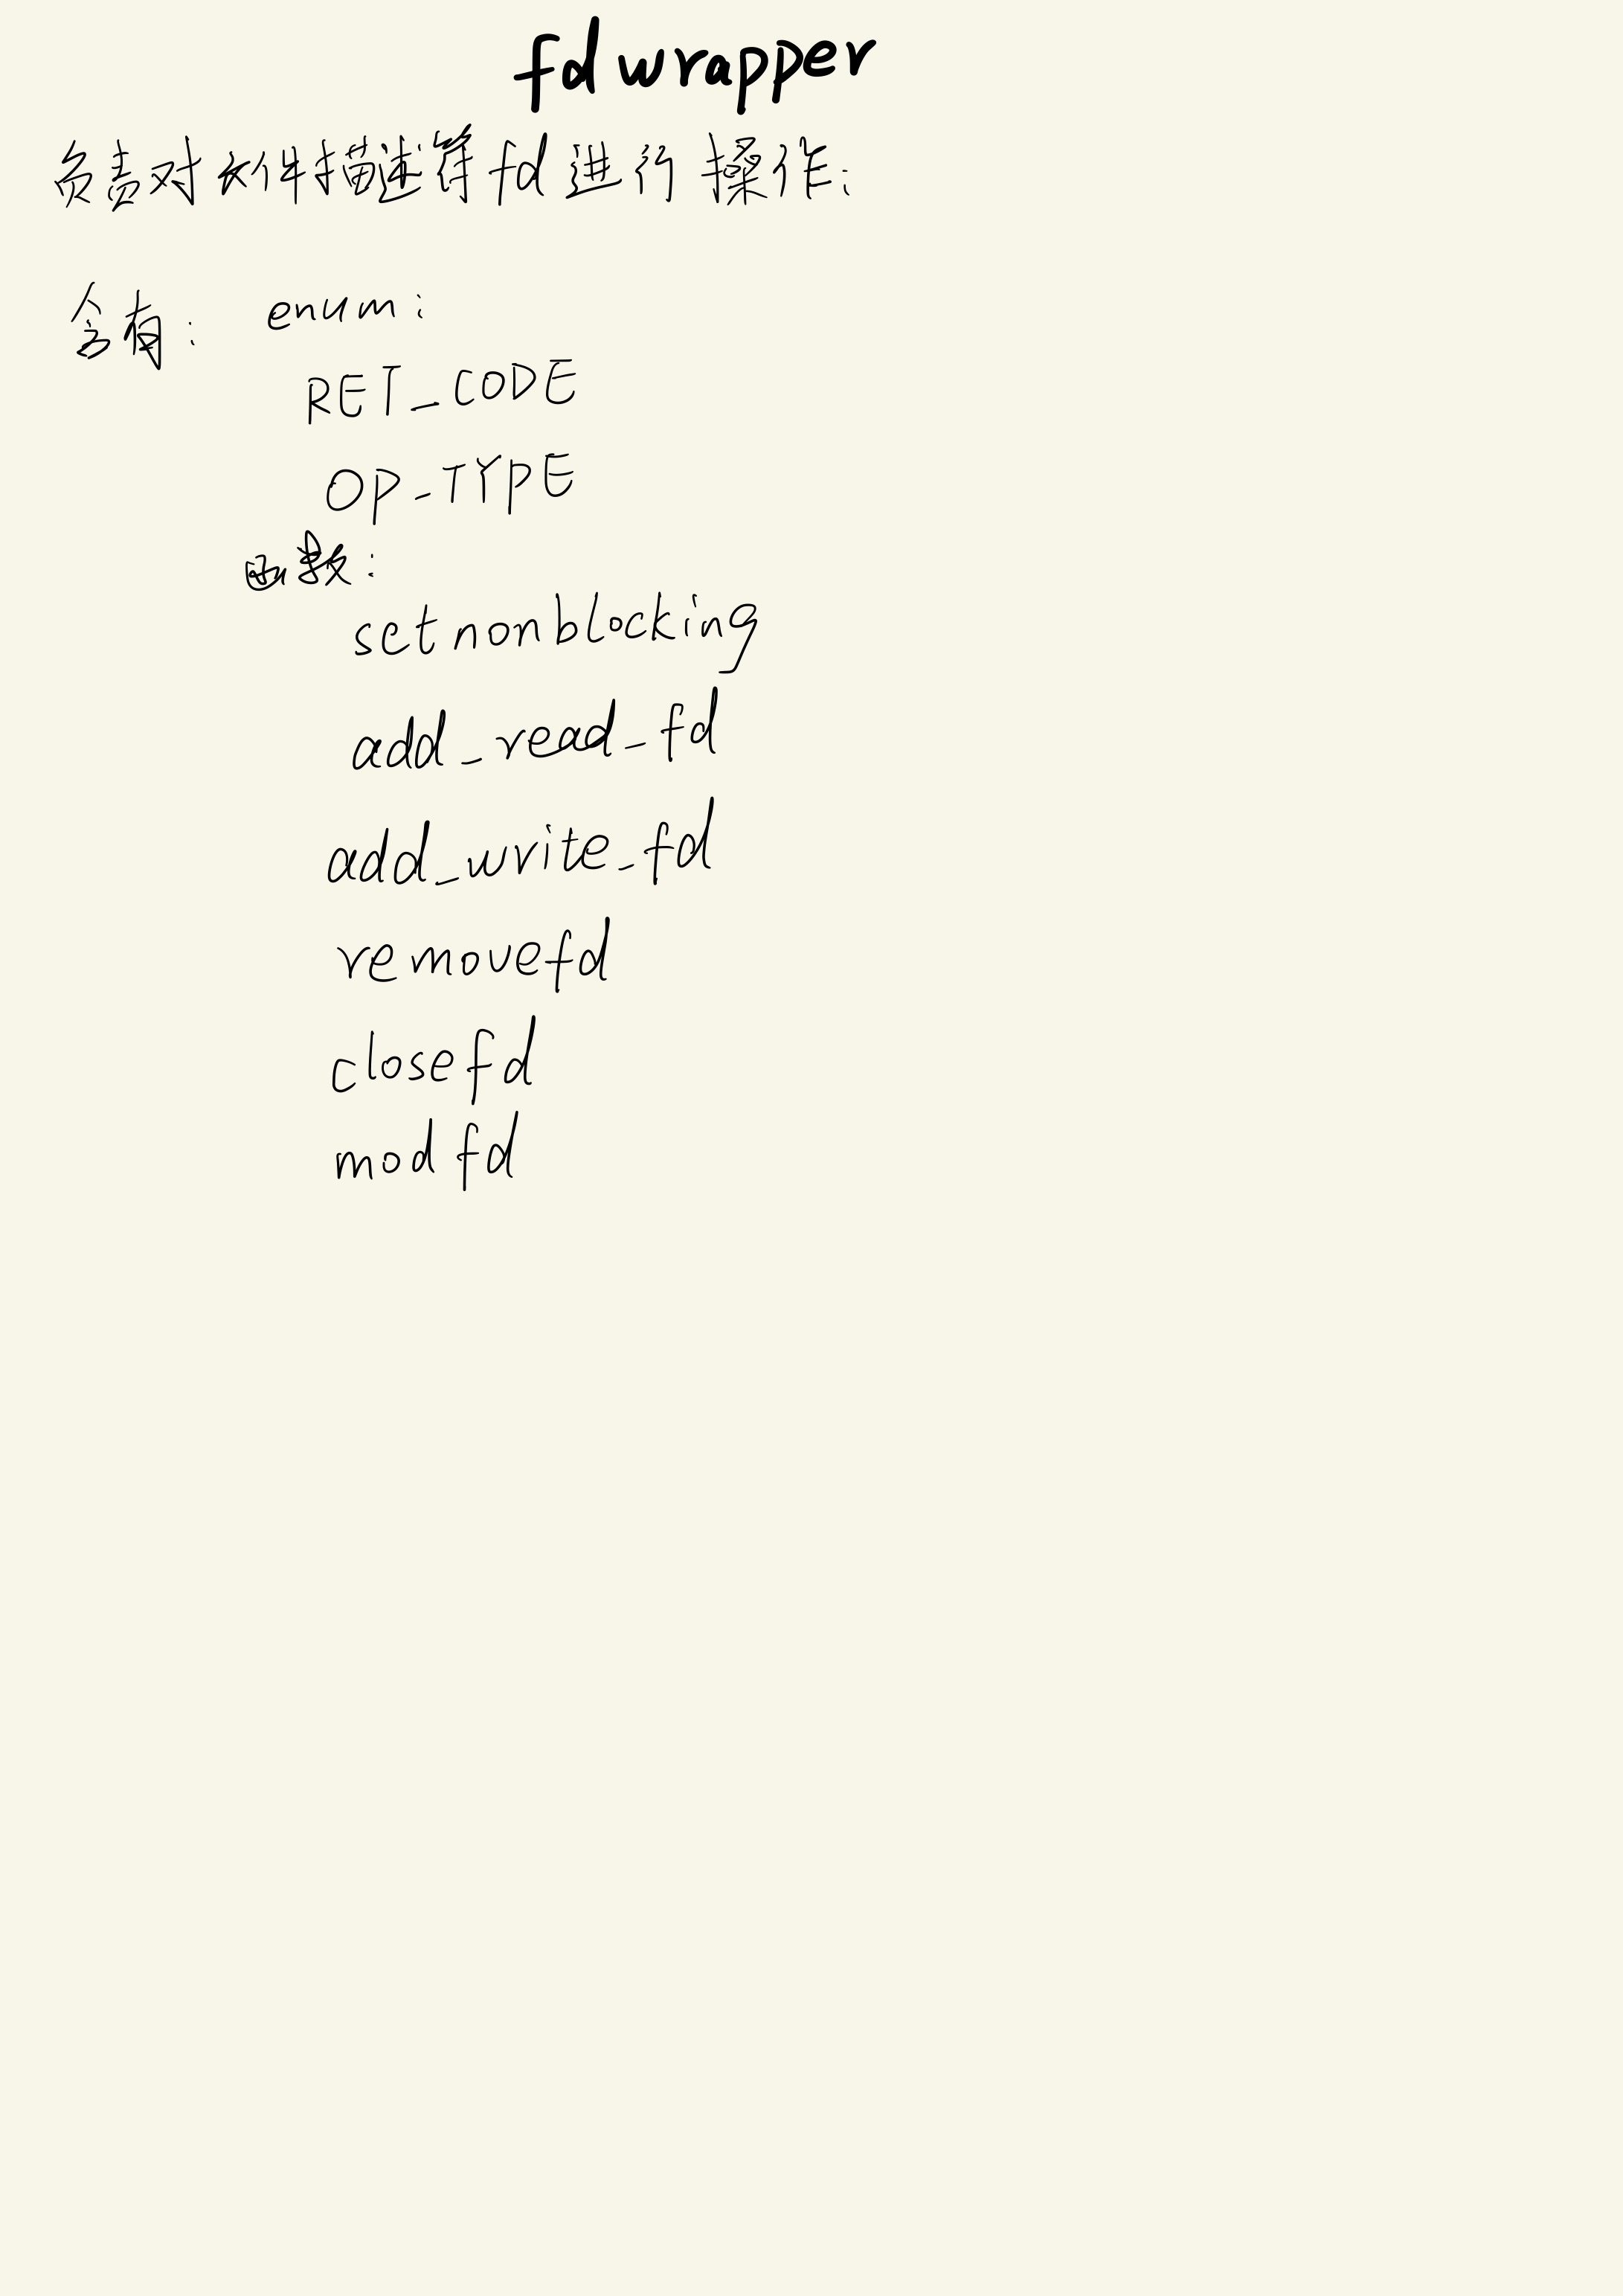 fdwrapper
负责对文件描述符fd进行操作:
含有: enum:
RET_CODE
OP_TYPE
函数:
setnonblocking
add_read_fd
add_write_fd
removefd
closefd
modfd